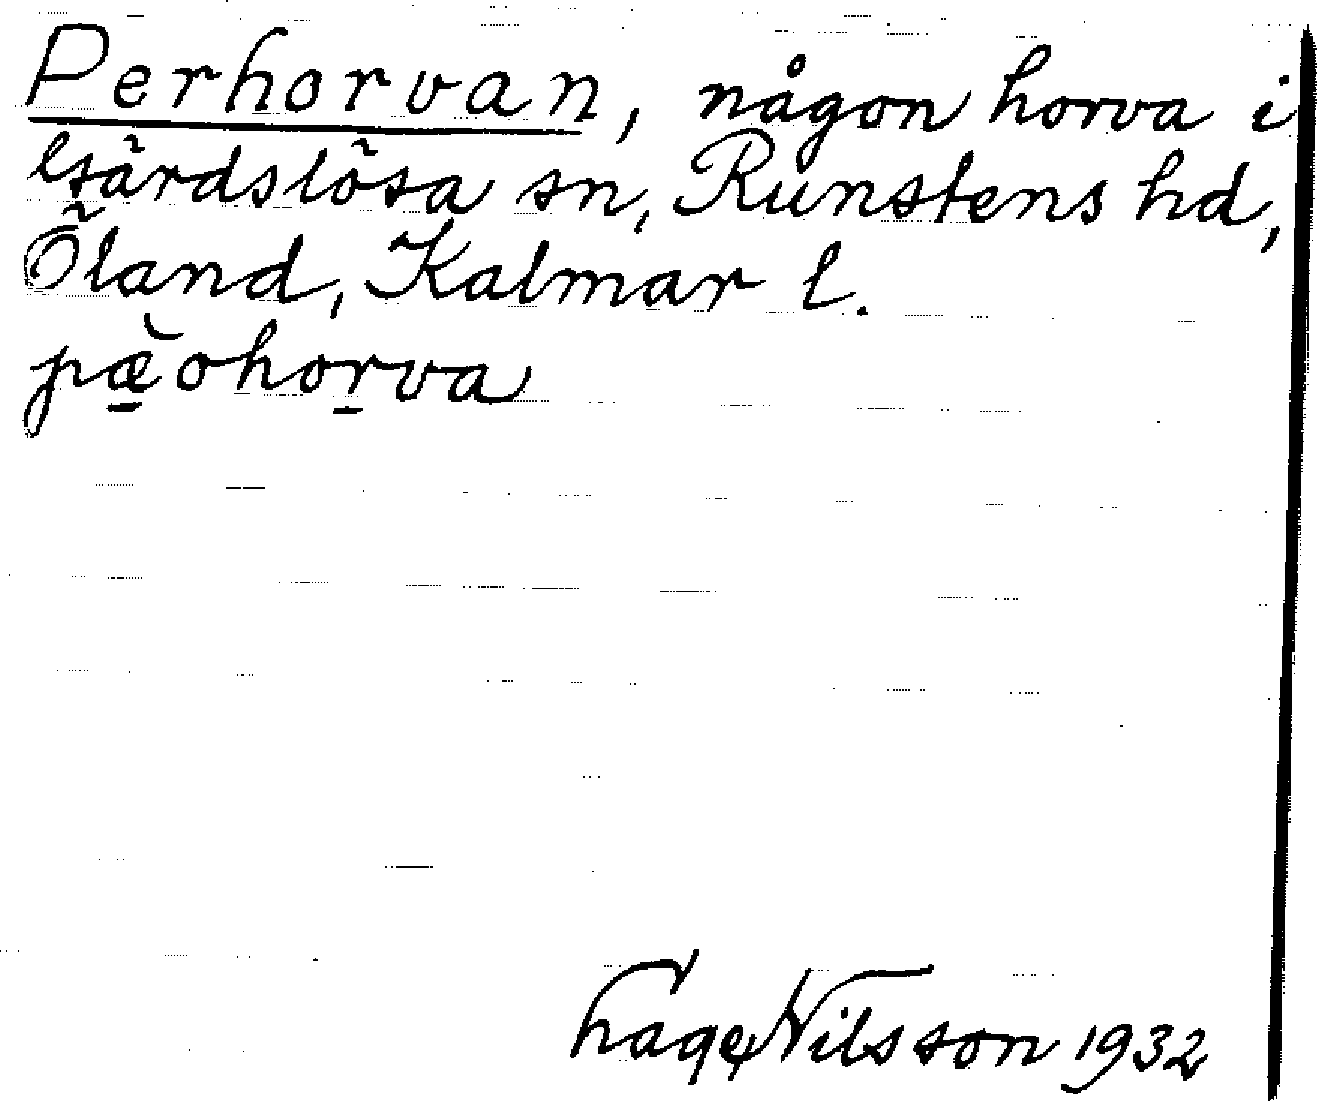 Perhorvan, någon horva i
Gärdslösa sn, Runstens hd,
Öland, Kalmar l.
Nilsson 1932